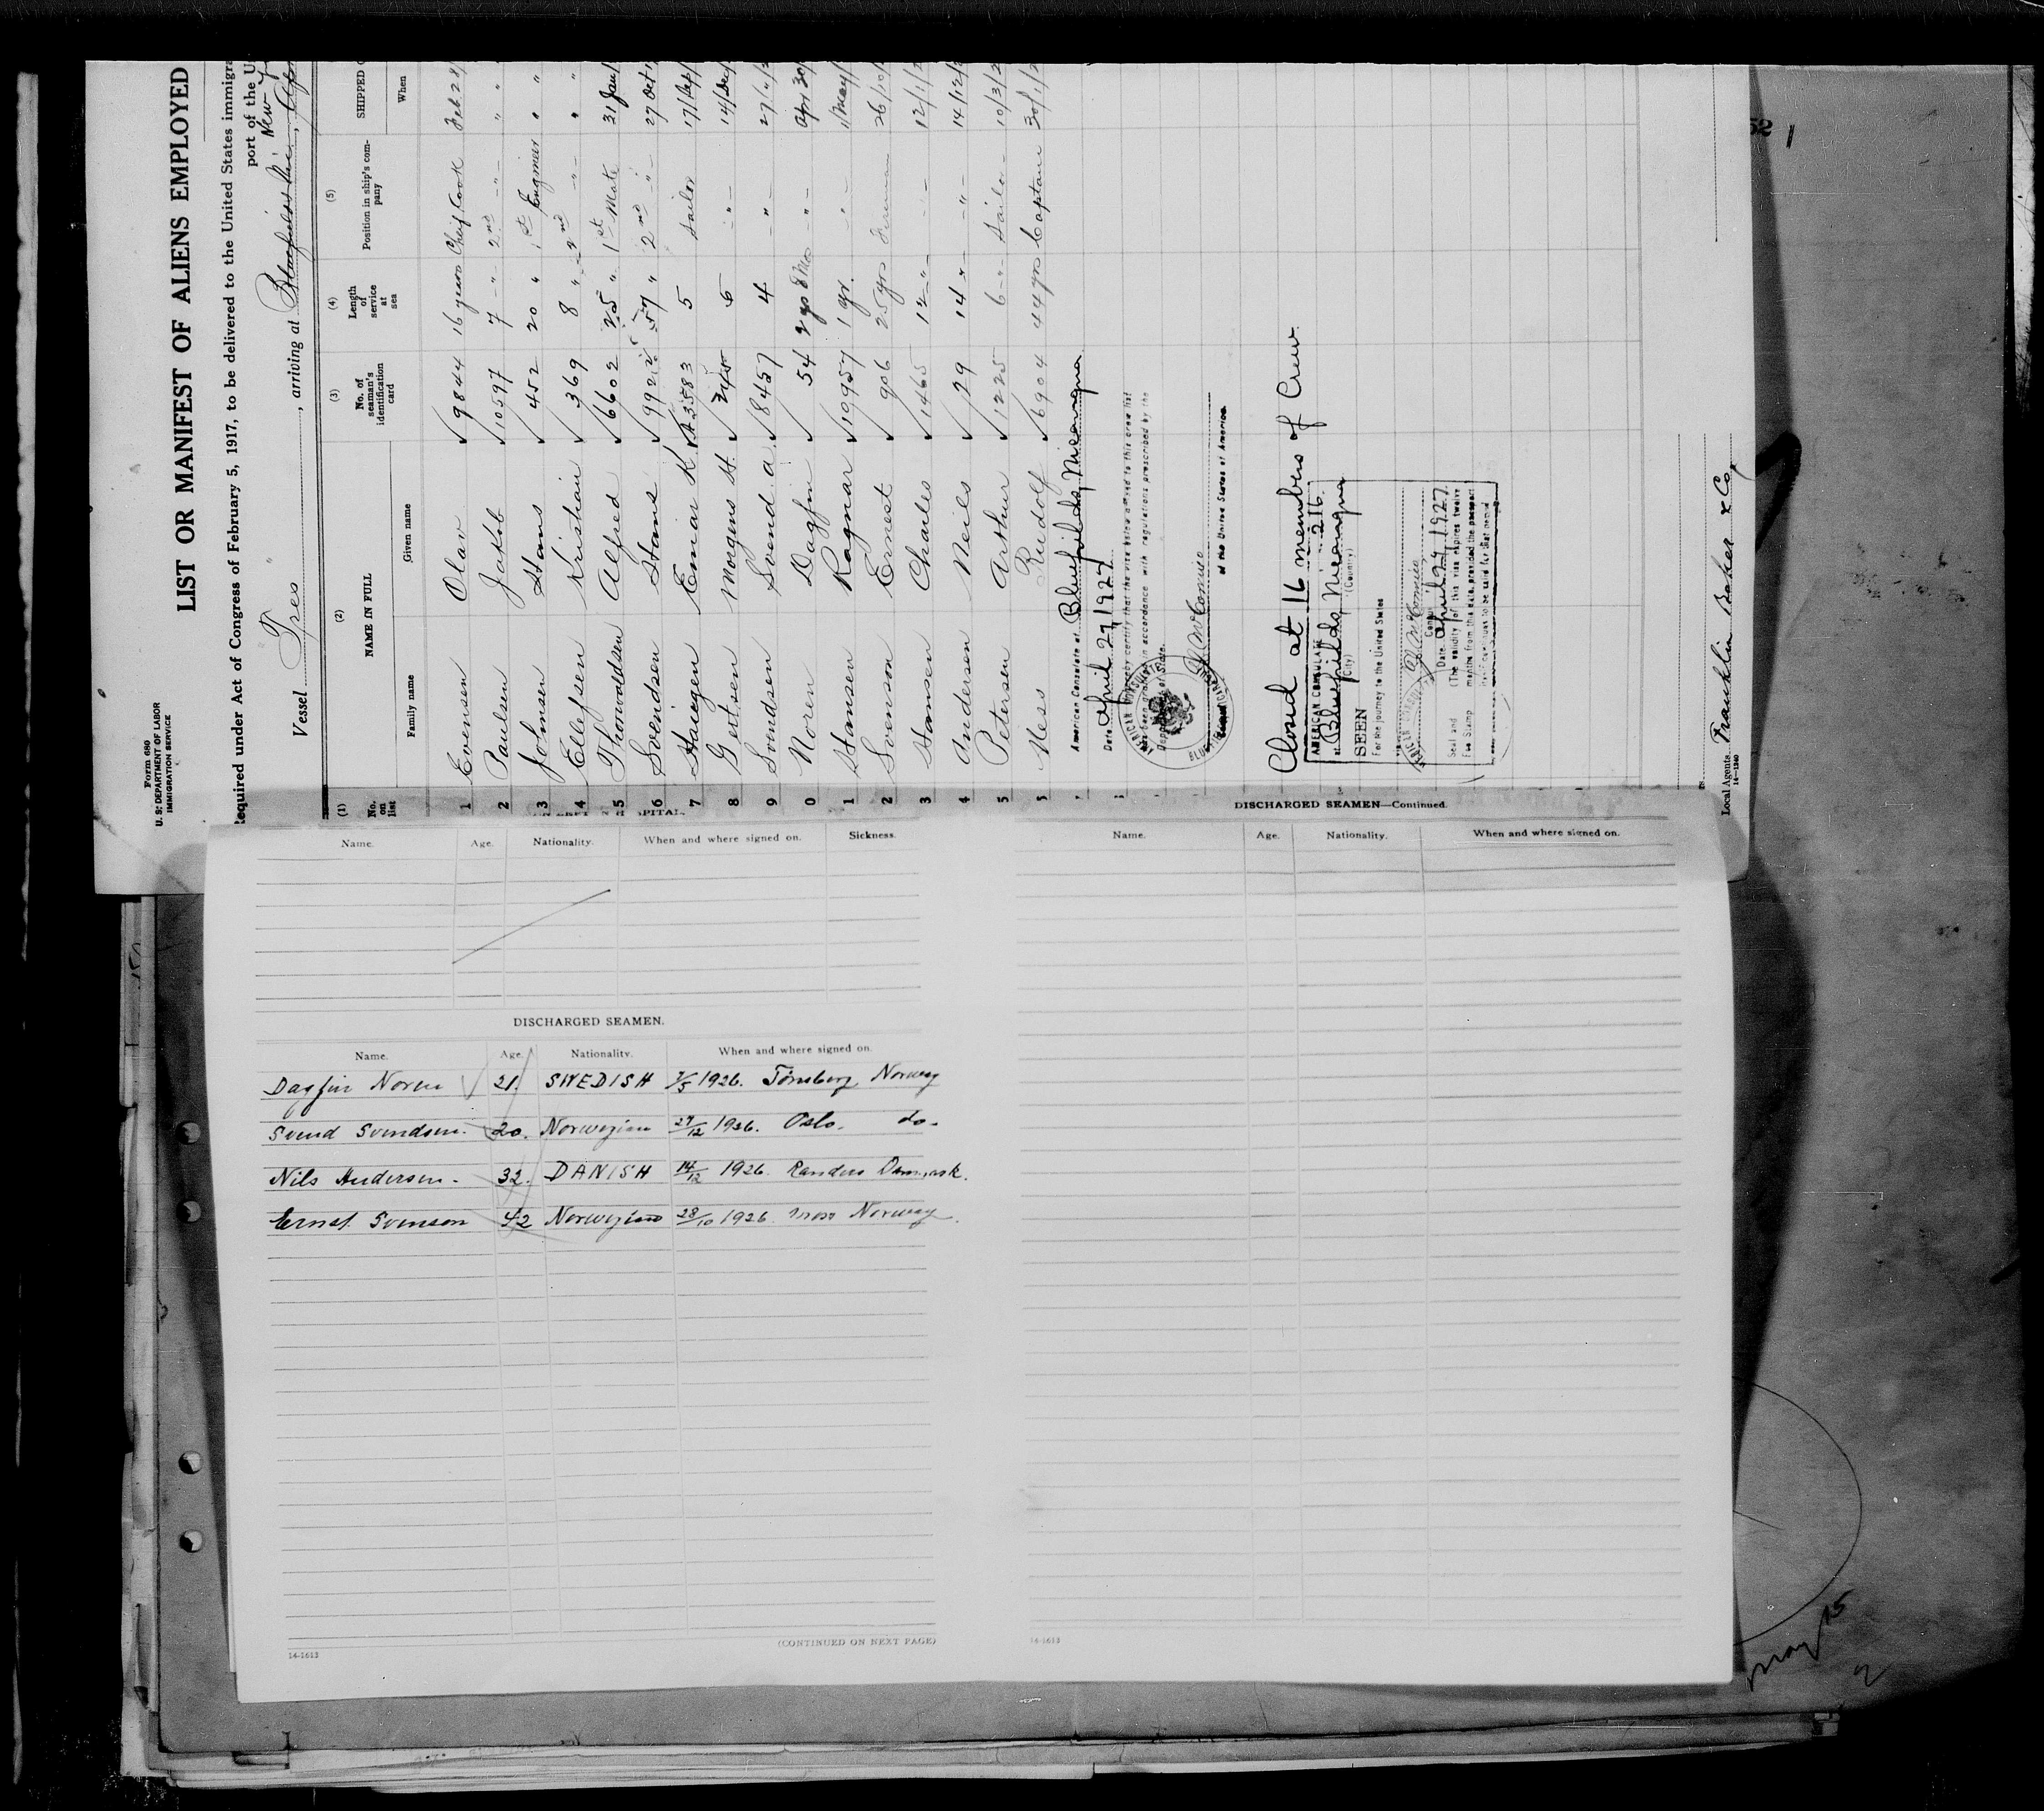 Form 680
U. S. DEPARTMENT OF LABOR
IMMIGRATION SERVICE
LIST OR MANIFEST OF ALIENS EMPLOYED
Required under Act of Congress of February 5, 1917, to be delivered to the United States immigra
port of the U
Vessel Tres, arriving at Bluefields Nic. New
(1) (2) (3) (4) (5)
No. on list NAME IN FULL No. of seaman's identification card Length of service at sea Position in ship's company SHIPPED
Family name Given name When
1 Evensen Olav 9844 16 years Chief Cook Feb 28
2 Paulsen Jakob 10597 7 -"- 2nd -"- "
3 Johnsen Hans 452 20 " 1st Engineer "
4 Ellefsen Kristian 369 8 " 2nd -"- "
5 Thorvaldsen Alfred 6602 25 " 1st Mate 31 Jan
6 Svendsen Hans 9922 57 " 2nd -"- 27 Oct
7 Haugen Einar K. 3583 5 Sailor 17/Sep
8 Gertsen Mogens H. 245 6 -"- 14/Dec
9 Svendsen Svend A. 8457 4 -"- 27/12
0 Noren Dagfin 54 2 yrs 8 Mos -"- Apr 30
1 Hansen Ragnar 19957 1 yr. -"- 1/May
2 Svenson Ernest 906 25 yrs Fireman 26/10
3 Hansen Charles 1465 12 -"- -"- 12/1/2
4 Andersen Neils 29 14 -"- -"- 14/12/2
5 Petersen Arthur 1225 6 -"- Sailor 10/3/2
Ness Rudolf 6904 44 yrs Captain 30/1/2
American Consulate at Bluefields, Nicaragua
Date April 27, 1927
I hereby certify that the visa below affixed to this crew list
has been granted in accordance with regulations prescribed by the
Department of State.
of the United States of America.
Closed at 16 members of Crew.
AMERICAN CONSULATE 216
at Bluefields, Nicaragua
(City) (Country)
SEEN
For the journey to the United States
Consul
Date April 27 1927
Seal and Fee Stamp
(The validity of this visa expires twelve
months from this date, provided the passport
continues to be valid for that period
Local Agents Franklin Baker & Co.
14—1240
52
Name. Age. Nationality. When and where signed on. Sickness.
DISCHARGED SEAMEN.
Name. Age. Nationality. When and where signed on.
Dagfin Noren 21. SWEDISH 7/5 1926. Tönsberg, Norway
Svend Svendsen. 20. Norwegian 27/12 1926. Oslo. do.
Nils Andersen. 32. DANISH 14/12 1926. Randers Danmark.
Ernst Svenson 42 Norwegian 28/10 1926. Moss Norway.
(CONTINUED ON NEXT PAGE)
14-1613
DISCHARGED SEAMEN—Continued.
Name. Age. Nationality. When and where signed on.
14-1613
May 15
2